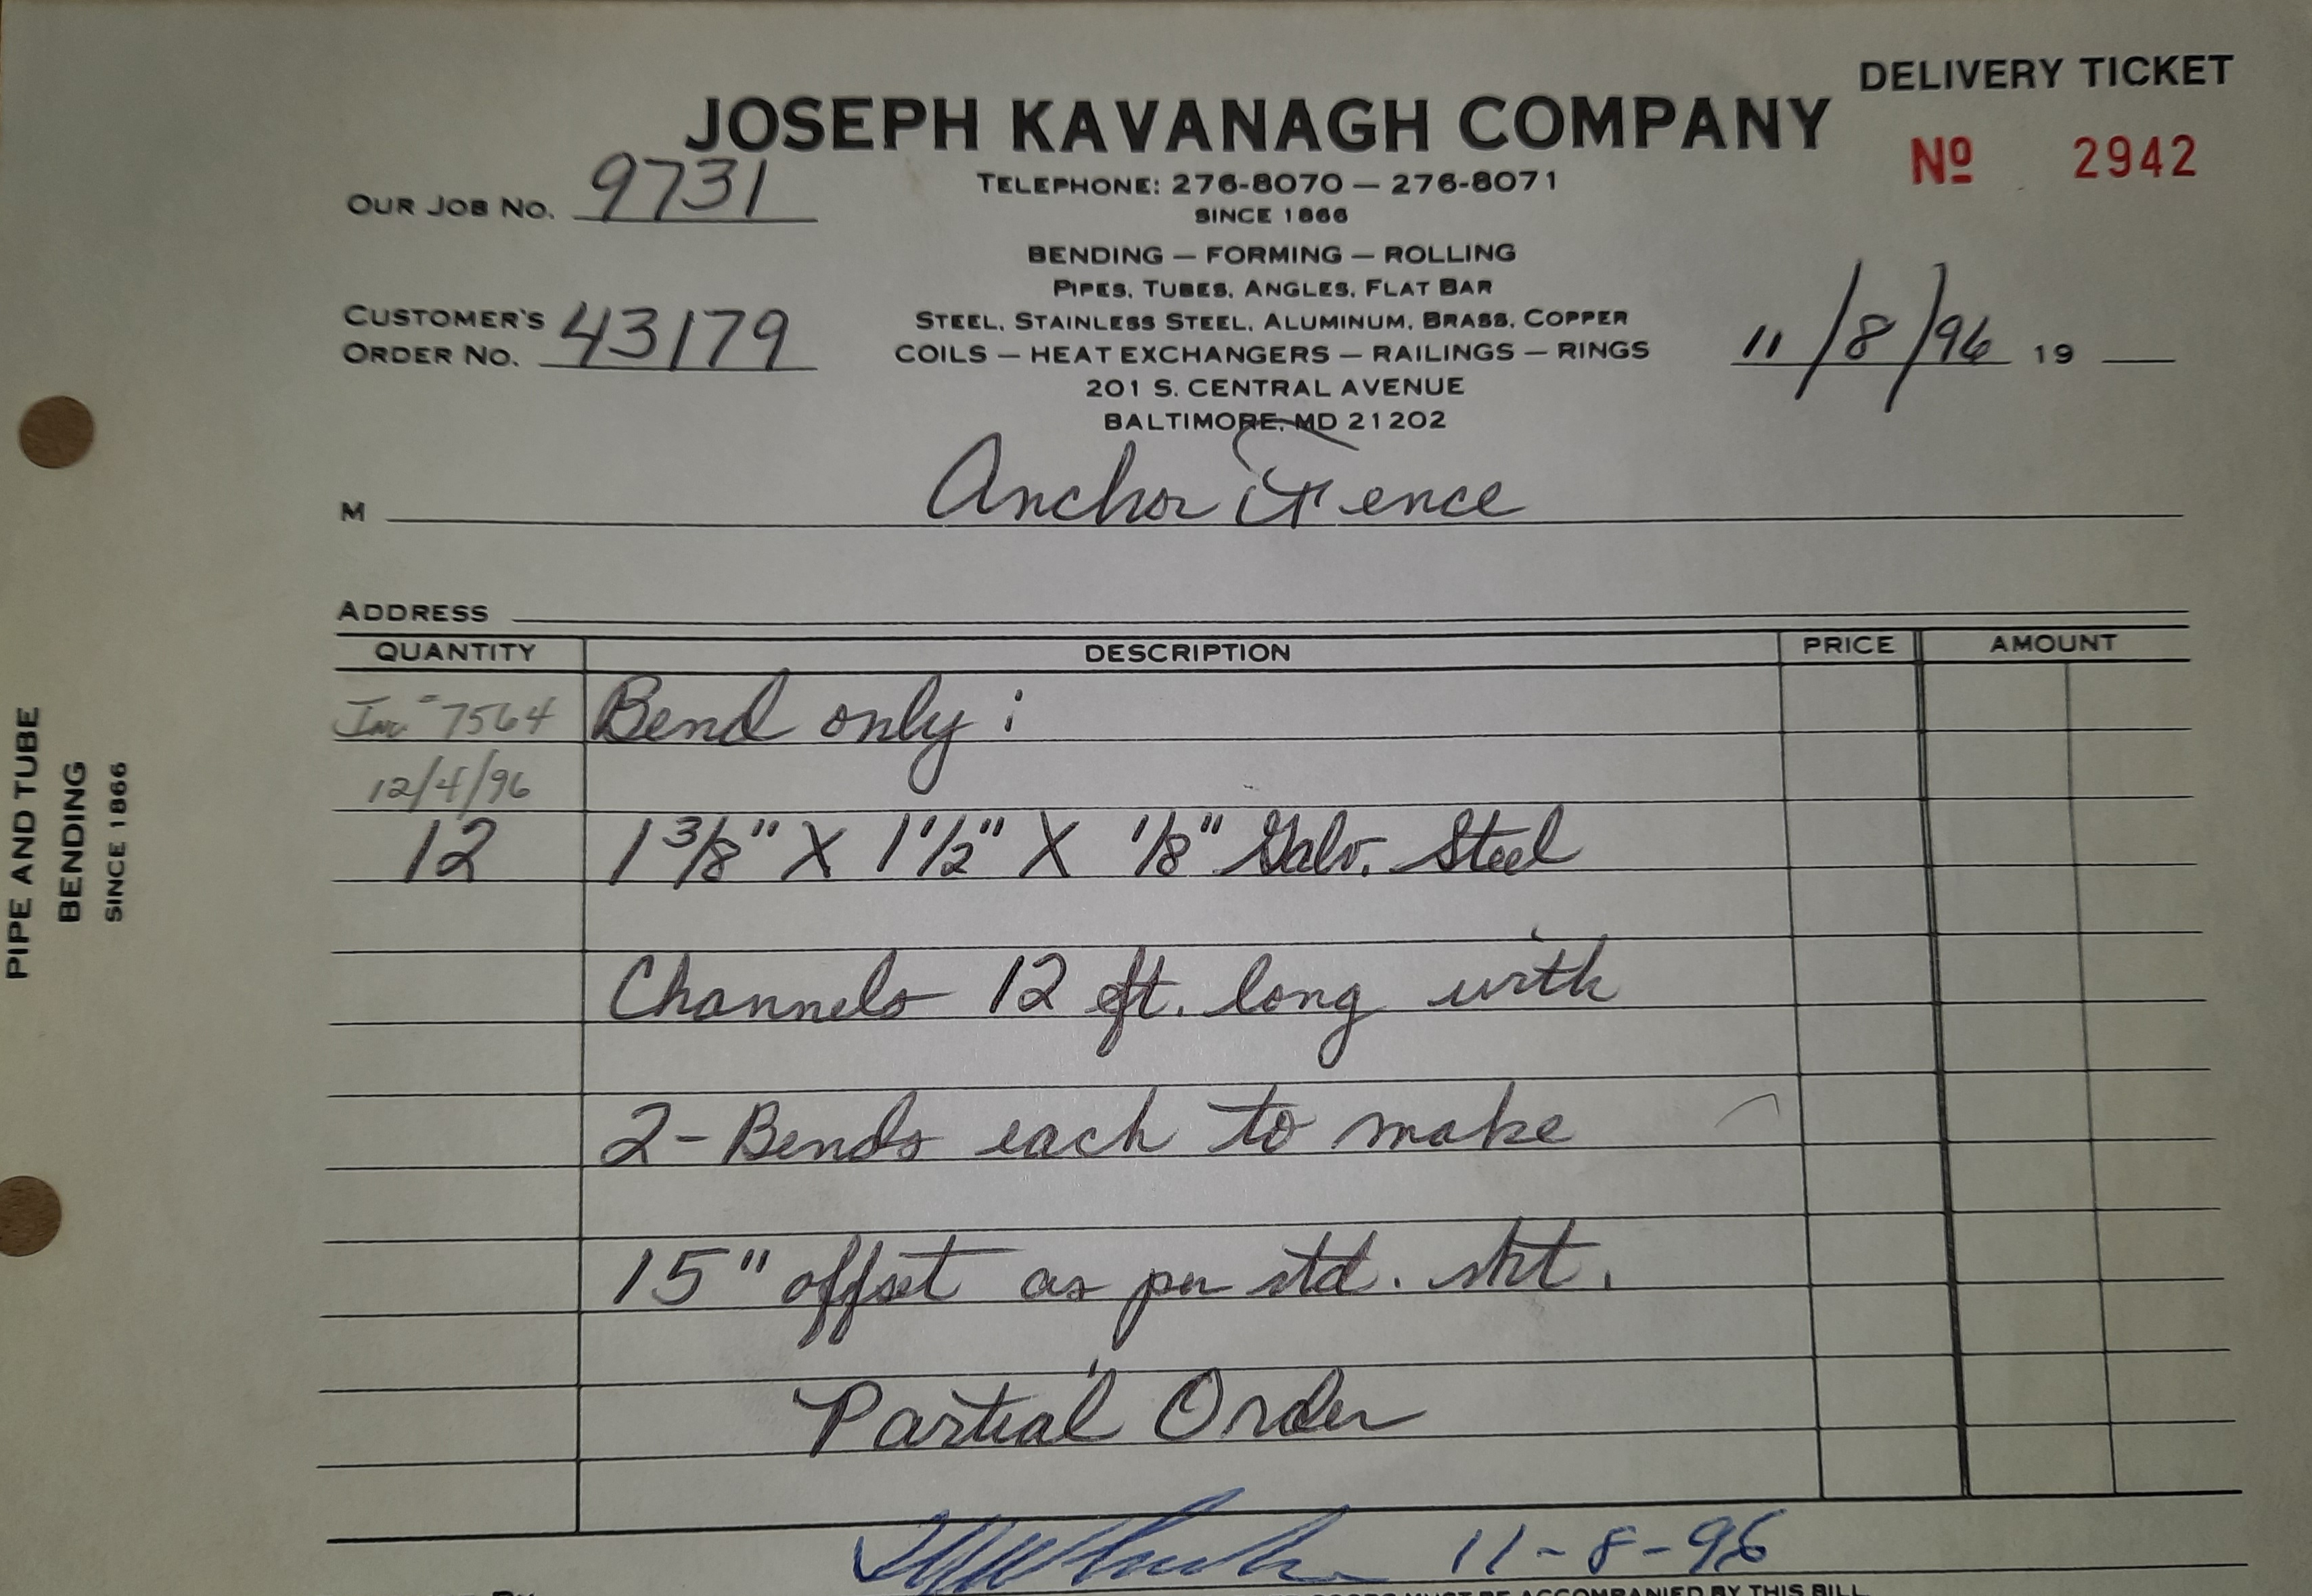 DELIVERY TICKET
JOSEPH KAVANAGH COMPANY
Nº 2942
OUR JOB NO. 9731
TELEPHONE: 276-8070 — 276-8071
SINCE 1866
BENDING — FORMING — ROLLING
PIPES, TUBES, ANGLES, FLAT BAR
CUSTOMER'S
ORDER NO. 43179
STEEL, STAINLESS STEEL, ALUMINUM, BRASS, COPPER
COILS — HEAT EXCHANGERS — RAILINGS — RINGS
11/8/96 19
201 S. CENTRAL AVENUE
BALTIMORE, MD 21202
M Anchor Fence
ADDRESS
QUANTITY DESCRIPTION PRICE AMOUNT
Inv # 7564 Bend only:
12/4/96
12 1 3/8" X 1 1/2" X 1/8" Galv. Steel
Channels 12 ft. long with
2-Bends each to make
15" offset as per std. skt.
Partial Order
11-8-96
MUST BE ACCOMPANIED BY THIS BILL
PIPE AND TUBE
BENDING
SINCE 1866